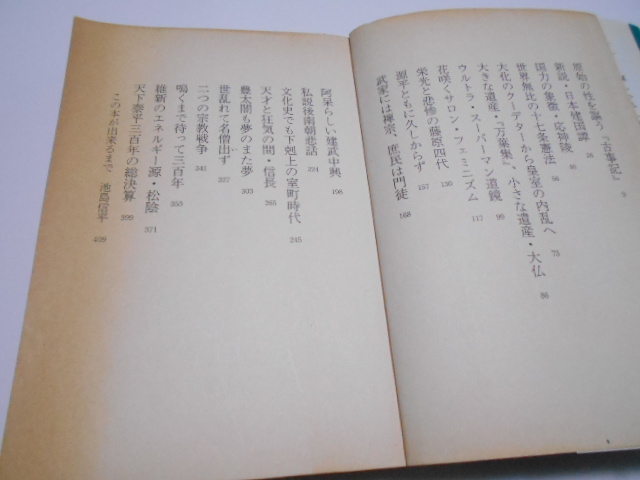 原始の性を謳う『古事記』 9
新説・日本建国譚 26
国力の象徴・応神陵
世界無比の十七条憲法 56
大化のクーデターから皇室の内乱へ 73
大きな遺産・『万葉集』、小さな遺産・大仏 86
ウルトラ・スーパーマン道鏡 96
花咲くサロン・フェミニズム 117
栄光と悲惨の藤原四代 139
源平ともに久しからず 157
武家には禅宗、庶民は門徒 168
阿呆らしい建武中興 196
私説後南朝悲話 224
文化史でも下剋上の室町時代 245
天才と狂気の間・信長 265
豊太閤も夢のまた夢 303
世乱れて名僧出ず 327
二つの宗教戦争 341
鳴くまで待って三百年 353
維新のエネルギー源・松陰 371
天下泰平三百年の総決算 399
この本が出来るまで 池島信平 409